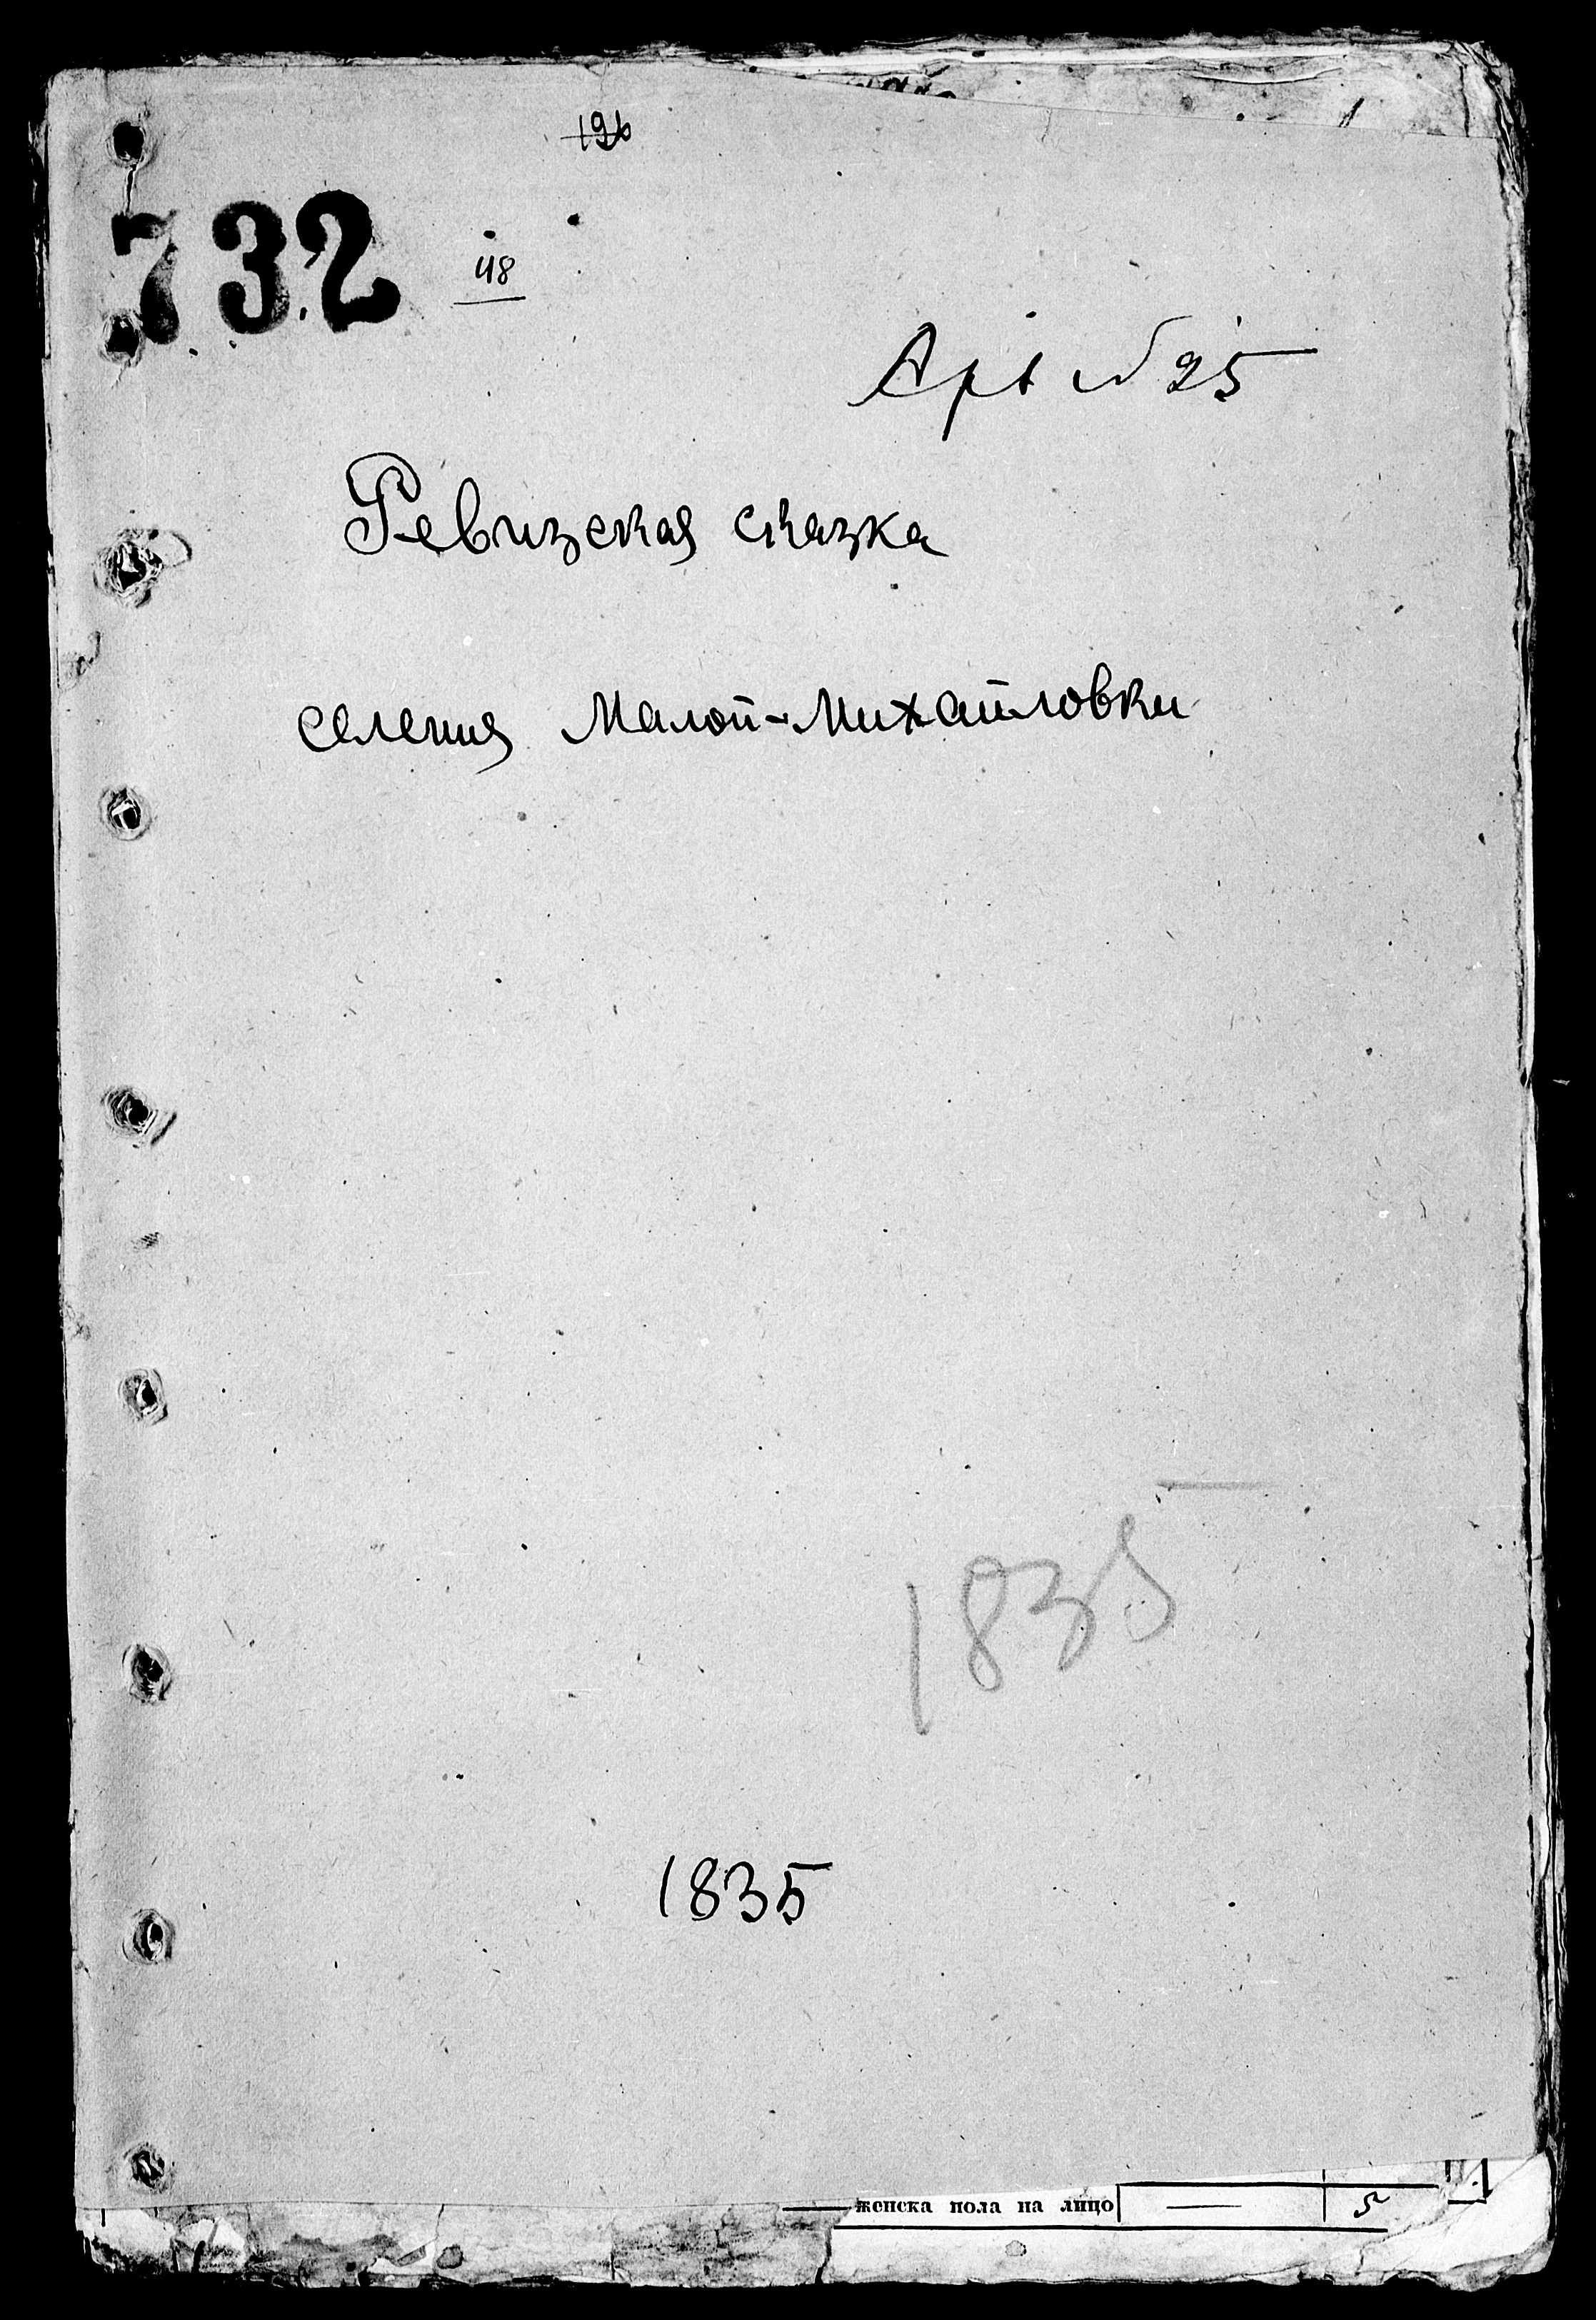 196
732
48
Арх №25
Ревизская сказка
селения Малой-Михайловки
1835
1835
женска пола на лицо
5